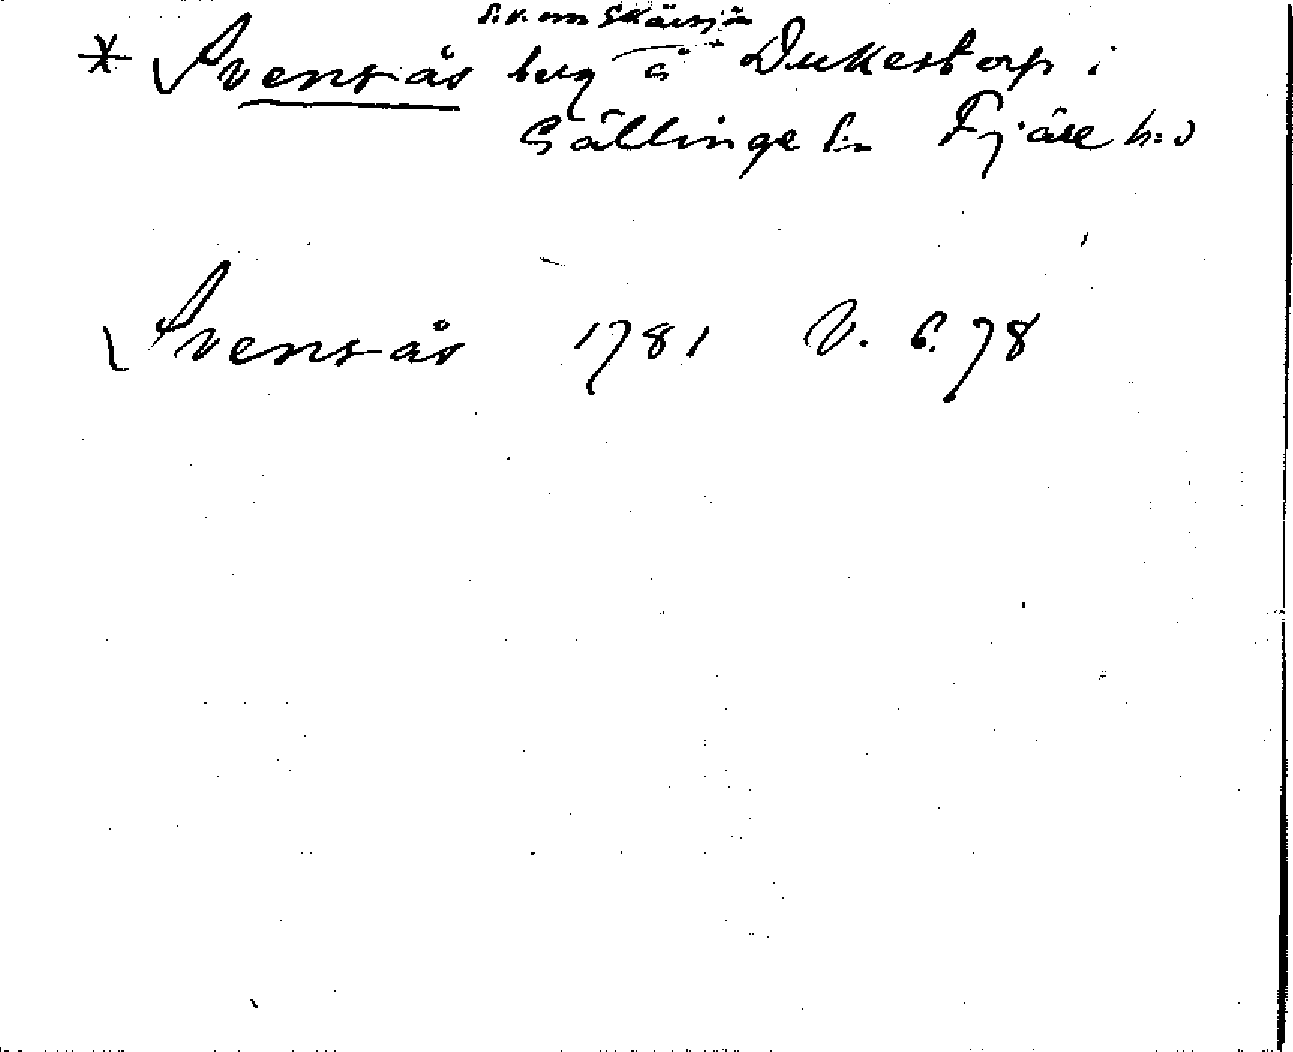 s.v. om Skärsjö
* Svensås berg å Dukestorp i
Gällinge sn Fjäre hd
Svensås 1781 V. 6. 78